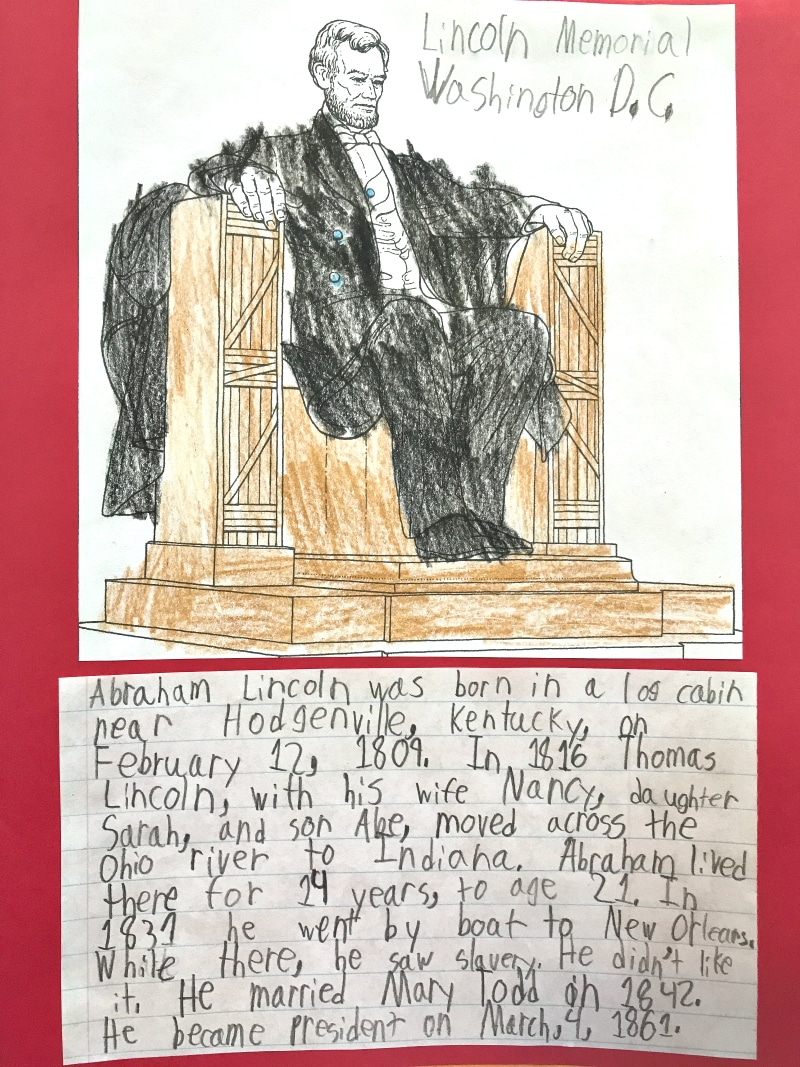 Lincoln Memorial
Washington D.C.
Abraham Lincoln was born in a log cabin
near Hodgenville, Kentucky, on
February 12, 1809. In 1816 Thomas
Lincoln, with his wife Nancy, daughter
Sarah, and son Abe, moved across the
Ohio river to Indiana. Abraham lived
there for 14 years, to age 21. In
1831 he went by boat to New Orleans.
While there, he saw slavery. He didn't like
it. He married Mary Todd in 1842.
He became president on March, 4, 1861.